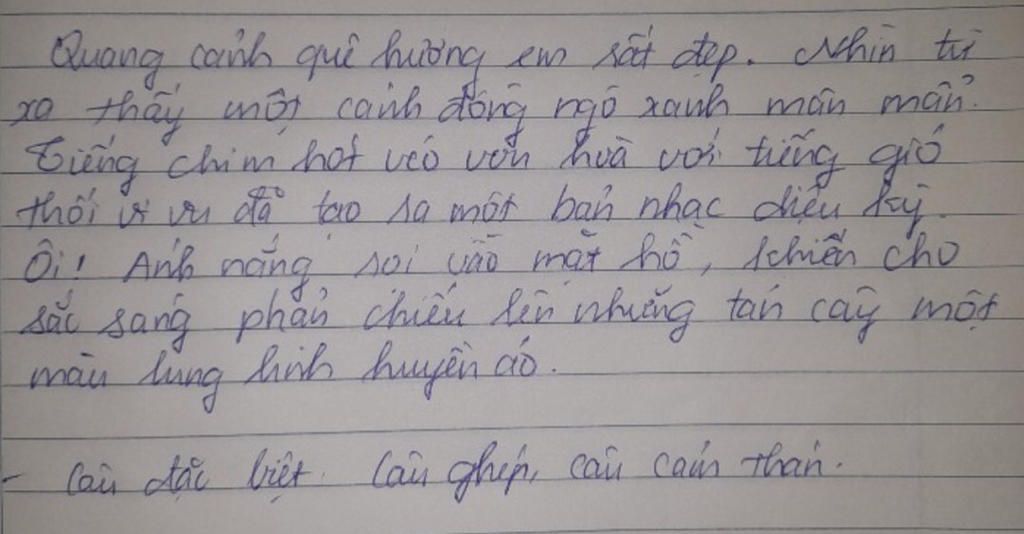 Quang cảnh quê hương em rất đẹp. Nhìn từ
xa thấy một cánh đồng ngô xanh mơn mởn.
Tiếng chim hót véo von hoà với tiếng gió
thổi vi vu đã tạo ra một bản nhạc diệu kỳ.
Ôi! Ánh nắng soi vào mặt hồ, khiến cho
sắc sáng phản chiếu lên những tán cây một
màu lung linh huyền ảo.
- Câu đặc biệt. Câu ghép, câu cảm thán.